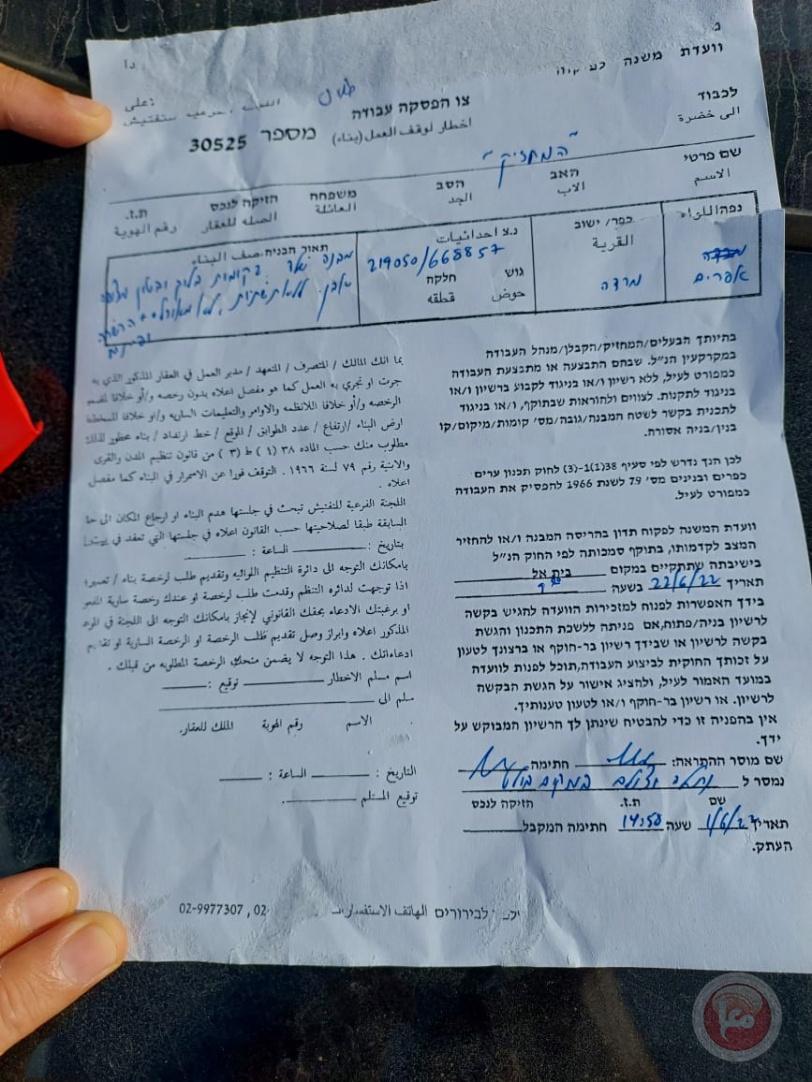 וועדת משנה
על:
לכבוד
الى خضرة
צו הפסקה עבודה
اخطار لوقف العمل (بناء)
מספר 30525
"המחזיק"
שם פרטי האב הסב משפחה חזיקה לנכס ת.ז.
الاسم الاب الجد العائلة الصله للعقار رقم الهوية
נפה اللواء כפר/ ישוב נ.צ احداثيات תאור הבניה صف البناء
القرية 219050/668857
אפרים מרדה גוש חלקה
حوض قطعه
בהיותך הבעלים/המחזיק/הקבלן/מנהל העבודה
במקרקעין הנ"ל. שבהם התבצעה או מתבצעת העבודה
כמפורט לעיל, ללא רשיון ו/או בניגוד לקבוע ברשיון ו/או
בניגוד לתקנות. לצווים ולהוראות שבתוקף, ו/או בניגוד
לתכנית בקשר לשטח המבנה/גובה/מס' קומות/מיקום/קו
בנין/בניה אסורה.
לכן הנך נדרש לפי סעיף 38(1)-(3) לחוק תכנון ערים
כפרים ובנינים מס' 79 לשנת 1966 להפסיק את העבודה
כמפורט לעיל.
וועדת המשנה לפקוח תדון בהריסה המבנה ו/או להחזיר
המצב לקדמותו, בתוקף סמכותה לפי החוק הנ"ל
בישיבתה שתתקיים במקום בית אל
תאריך 22/6/22 בשעה
בידך האפשרות לפנות למזכירות הוועדה להגיש בקשה
לרשיון בניה/פתוח, אם פניתה ללשכת התכנון והגשת
בקשה לרשיון או שבידך רשיון בר-חוקף או ברצונך לטעון
על זכותך החוקית לביצוע העבודה, תוכל לפנות לוועדה
במועד האמור לעיל, ולהציג אישור על הגשת הבקשה
לרשיון. או רשיון בר-חוקף ו/או לטעון טענותיך.
אין בהפניה זו כדי להבטיח שינתן לך הרשיון המבוקש על
ידך.
שם מוסר ההתראה: חתימה
נמסר ל במקום בולט
שם ת.ז. חזיקה לנכס
תאריך 1/6/22 שעה 14:50 חתימה המקבל
העתק.
بما انك المالك / المتصرف / المتعهد / مدير العمل في العقار المذكور الذي به
جرت او تجري به العمل كما هو مفصل اعلاه بدون رخصه و/أو خلافا
الرخصه و/أو خلافا للانظمه والاوامر والتعليمات الساريه و/او خلافا للمخطط
ارض البناء /ارتفاع / عدد الطوابق / الموقع / خط ارتداد / بناء محظور لذلك
مطلوب منك حسب الماده ٣٨ (١) ط (٣) من قانون تنظيم المدن والقرى
والابنية رقم ٧٩ لسنة ١٩٦٦. التوقف فورا عن الاستمرار في البناء كما مفصل
اعلاه .
اللجنة الفرعية للتفتيش تبحث في جلستها هدم البناء او ارجاع المكان الى
السابقة طبقا لصلاحيتها حسب القانون اعلاه في جلستها التي تعقد في
بتاريخ : الساعة :
بامكانك التوجه الى دائرة التنظيم اللوائيه وتقديم طلب لرخصة بناء /
اذا توجهت لدائره التنظم وقدمت طلب لرخصة او عندك رخصة سارية
او برغبتك الادعاء بحقك القانوني لإنجاز بامكانك التوجه الى اللجنة في
المذكور اعلاه وابراز وصل تقديم طلب الرخصة او الرخصة السارية او
ادعاءاتك . هذا التوجه لا يضمن منحك الرخصة المطلوبه من قبلك .
اسم مسلم الاخطار توقيع :
سلم الى
الاسم رقم الهوية الملك للعقار.
التاريخ : الساعة :
توقيع المستلم
לבירורים الهاتف 02-9977307 , 02
معا